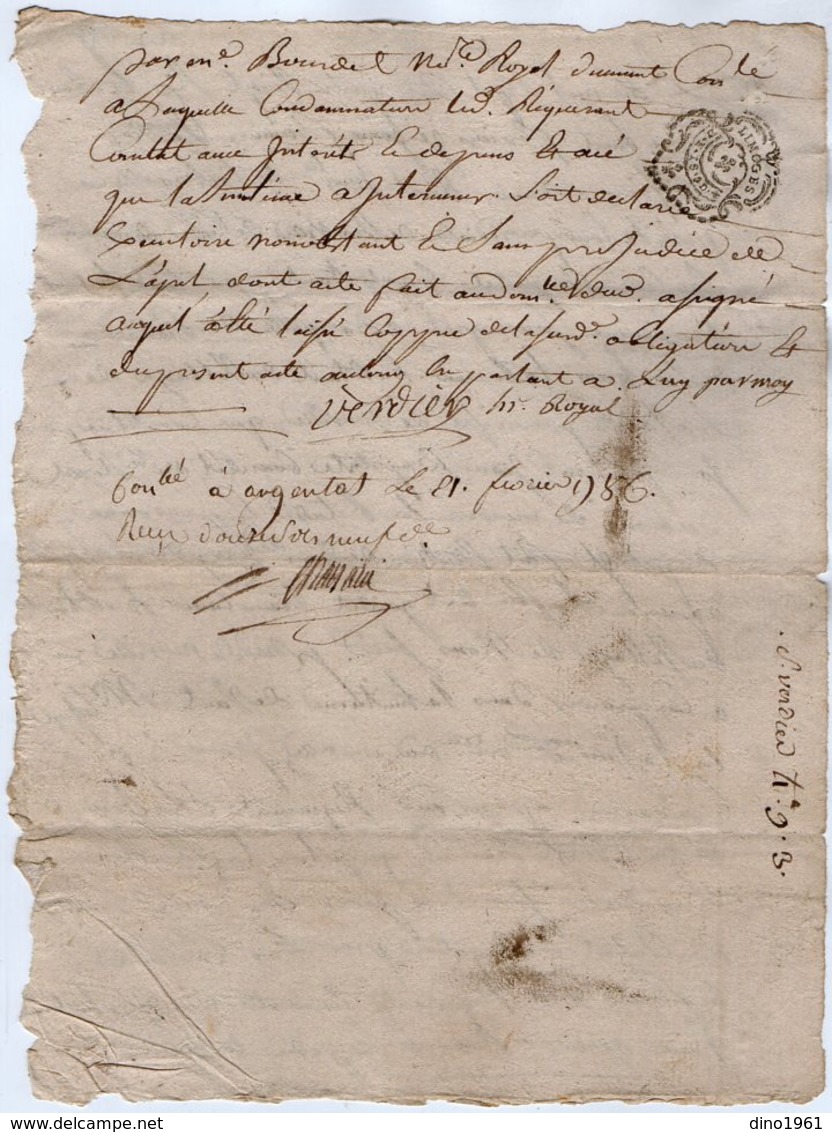 par me. Bourdel Nore. Royal dument Conlé
a Laquelle Condamnature led. Requerant
Conclut aux Interets Et depens Et ace
que la Sentence a Intervenir Soit declarée
Executoire nonobstant Et Sans prejudice de
L'apel dont acte fait au domlle dud. assigné
auquel a été laissé Coppye de lasusde. obligation &
dupresent acte parlant a Luy parmoy
Verdier hr. Royal
LIMOGES
Conllé à argentat Le 21. fevrier 1786.
Reçu sols neuf d.
S. verdier 4.a 9. 3.
dino1961